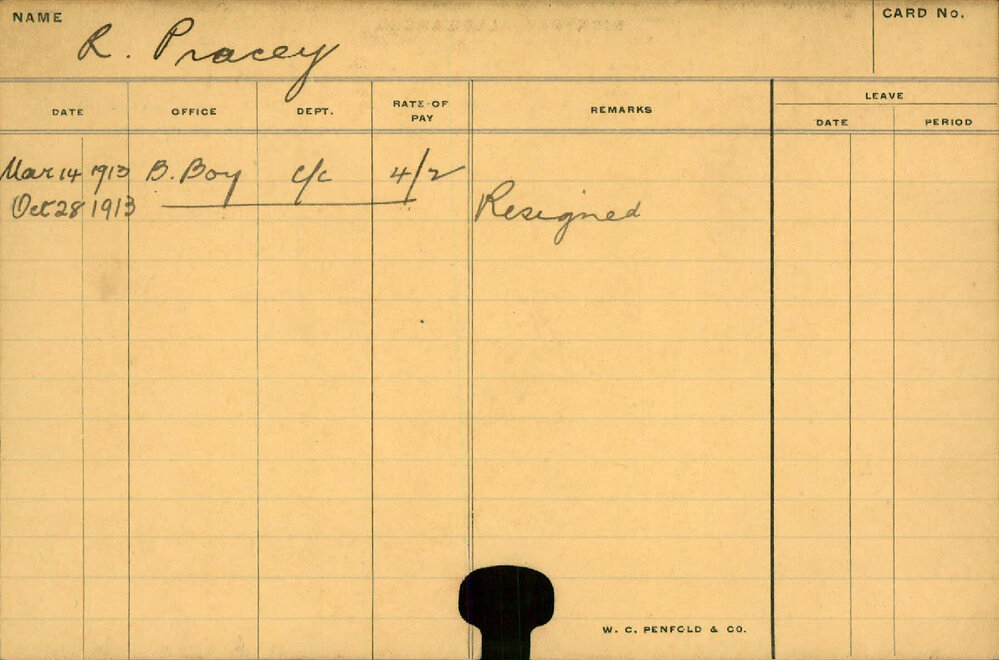 NAME R. Pracey CARD No.
DATE OFFICE DEPT. RATE OF PAY REMARKS LEAVE
DATE PERIOD
Mar 14 1913 B. Boy c/c 4/2
Oct 28 1913 Resigned
W. C. PENFOLD & CO.